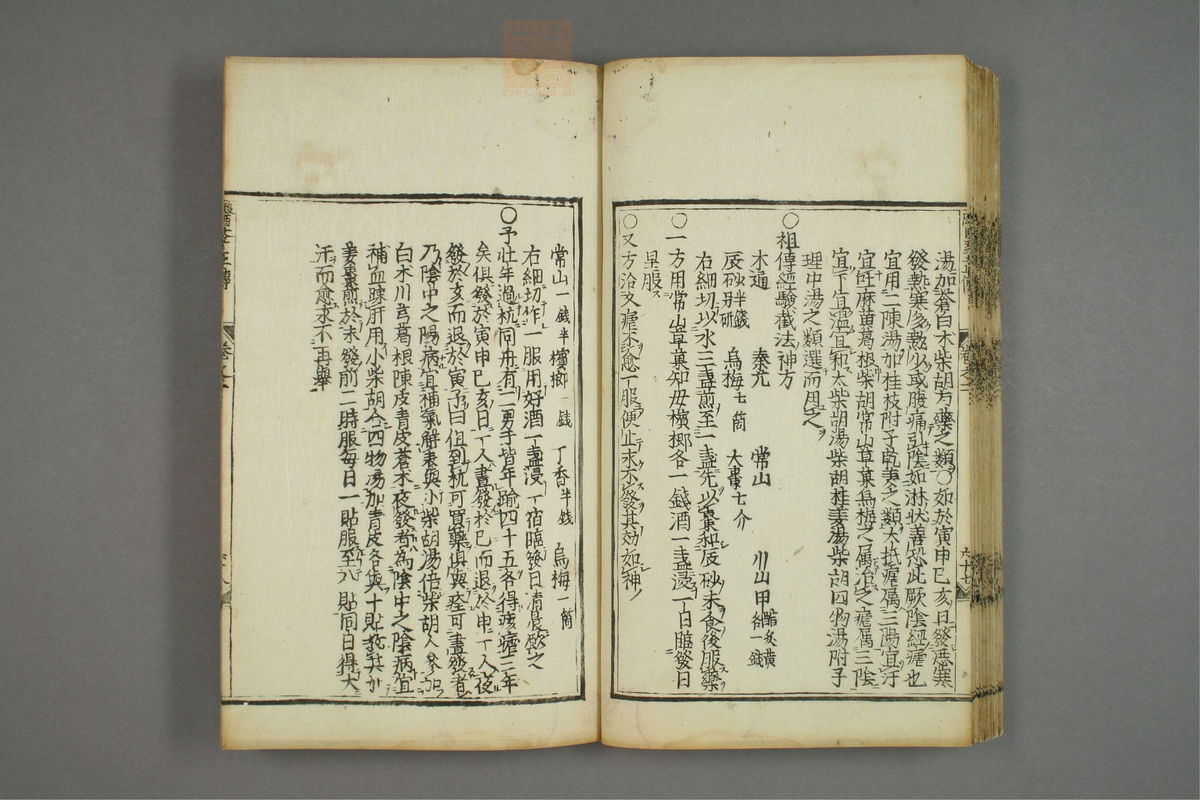 湯加蒼白朮柴胡方藥之類○如於寅申巳亥日發悪寒
發熱寒多熱少或腹痛引陰如淋状善恐此厥陰經瘧也
宜用二陳湯加桂枝附子乾姜之類大抵瘧属三陽宜汗
宜吐麻黄葛根柴胡常山草菓烏梅之属治之瘧属三陰
宜下宜温宜和大柴胡湯柴胡桂姜湯柴胡四物湯附子
理中湯之類選而用之
○祖傳經驗截法神方
木通 秦艽 常山 川山甲酷炙黄各一錢
辰砂半錢別研 烏梅七箇 大棗七介
右細切以水三盞煎至一盞先以棗和辰砂末食後服藥
○一方用常山草菓知母檳榔各一錢酒一盞浸一日臨發日
早服
○又方治久瘧不愈一服便止永不發其効如神
常山一錢半 檳榔一錢 丁香半錢 烏梅一箇
右細切作一服用好酒一盞浸一宿臨發日清晨飲之
○予壯年過杭同舟有二男子皆年踰四十五各得痎瘧三年
矣俱發於寅申巳亥日一人晝發於巳而退於申一人夜
發於亥而退於寅予曰但到杭可買藥俱與痊可晝發者
乃陰中之陽病宜補氣解表與小柴胡湯倍柴胡人參加
白朮川芎葛根陳皮青皮蒼朮夜發者為陰中之陰病宜
補血疎肝用小柴胡合四物湯加青皮各與十貼教其加
姜棗煎於未發前二時服每日一貼服至八貼同日得大
汗而愈永不再舉